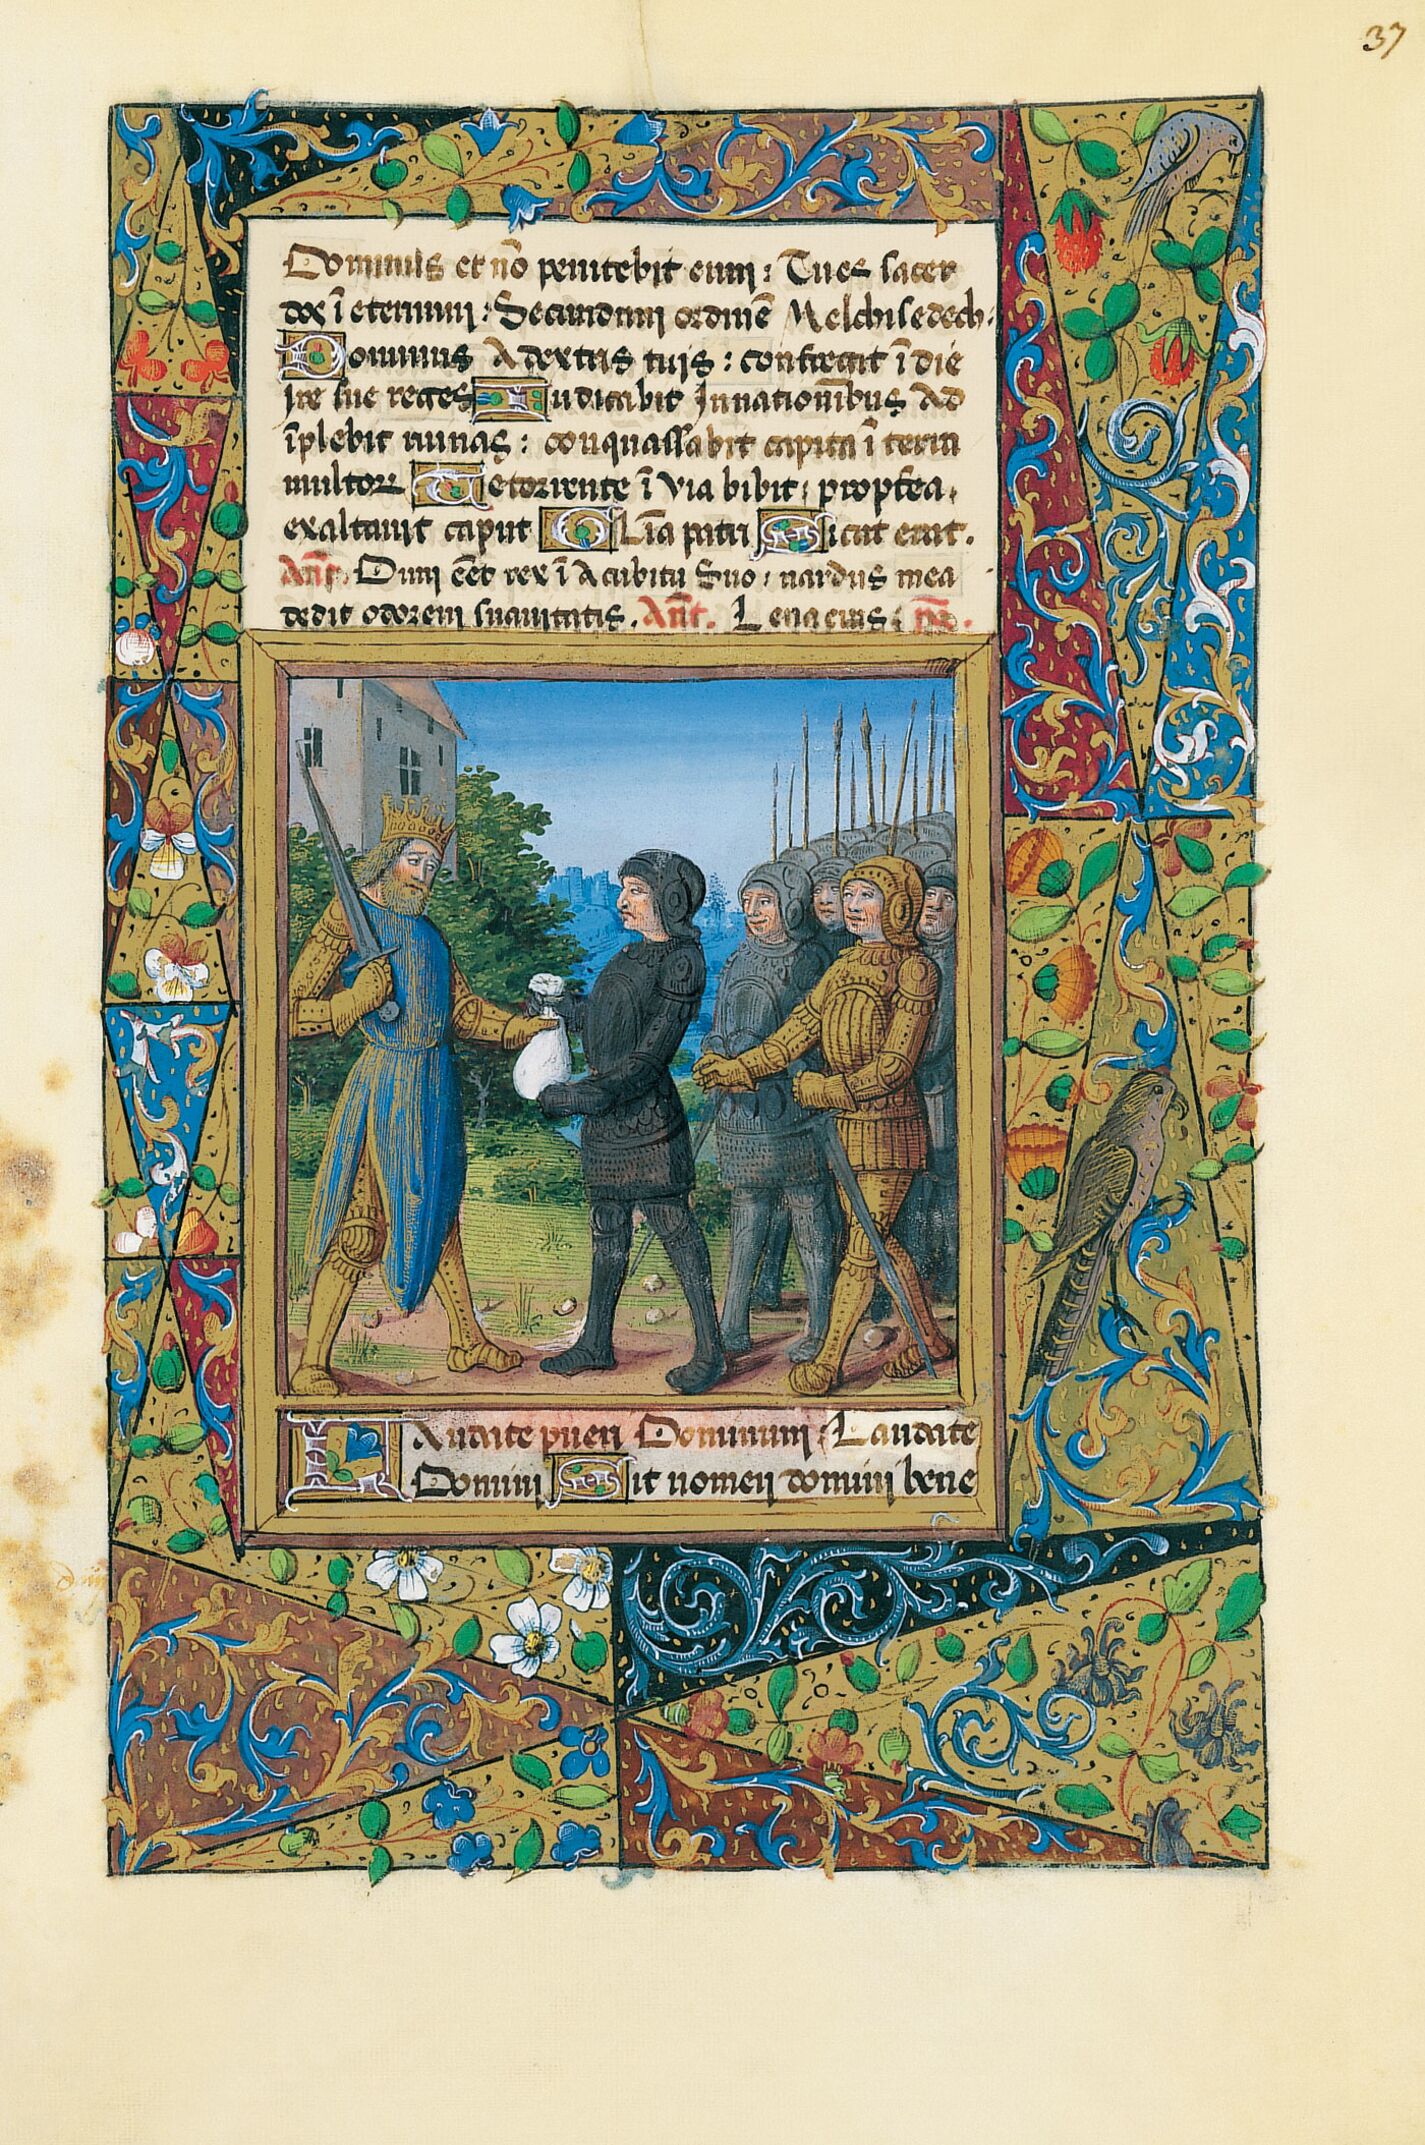 37
Dominus et nō penitebit eum : Tu es sacer
dos ī eternum : Secundum ordinē Melchisedech .
Dominus A dextris tuis : confregit ī die
ire sue reges Iudicabit In nationibus Ad
īplebit ruinas : conquassabit capita ī terra
multor De torrente ī via bibit : propterea .
exaltavit caput GLīa patri Sicut erat .
Añt. Dum eēt rex ī Acubitu Suo : nardus mea
dedit odorem suavitatis . Añt. Leva eius :
LAudate pueri Dominum : Laudate
Domini Sit nomen domini bene